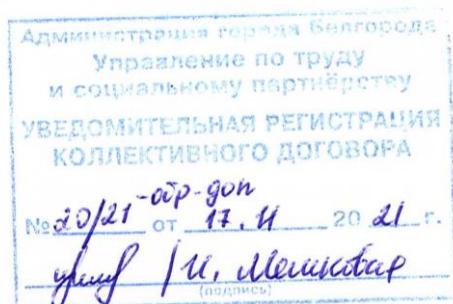 Администрация города Белгорода
Управление по труду
и социальному партнёрству
УВЕДОМИТЕЛЬНАЯ РЕГИСТРАЦИЯ
КОЛЛЕКТИВНОГО ДОГОВОРА
№ 20/21-обр-доп от 17.11 2021 г.
(подпись)